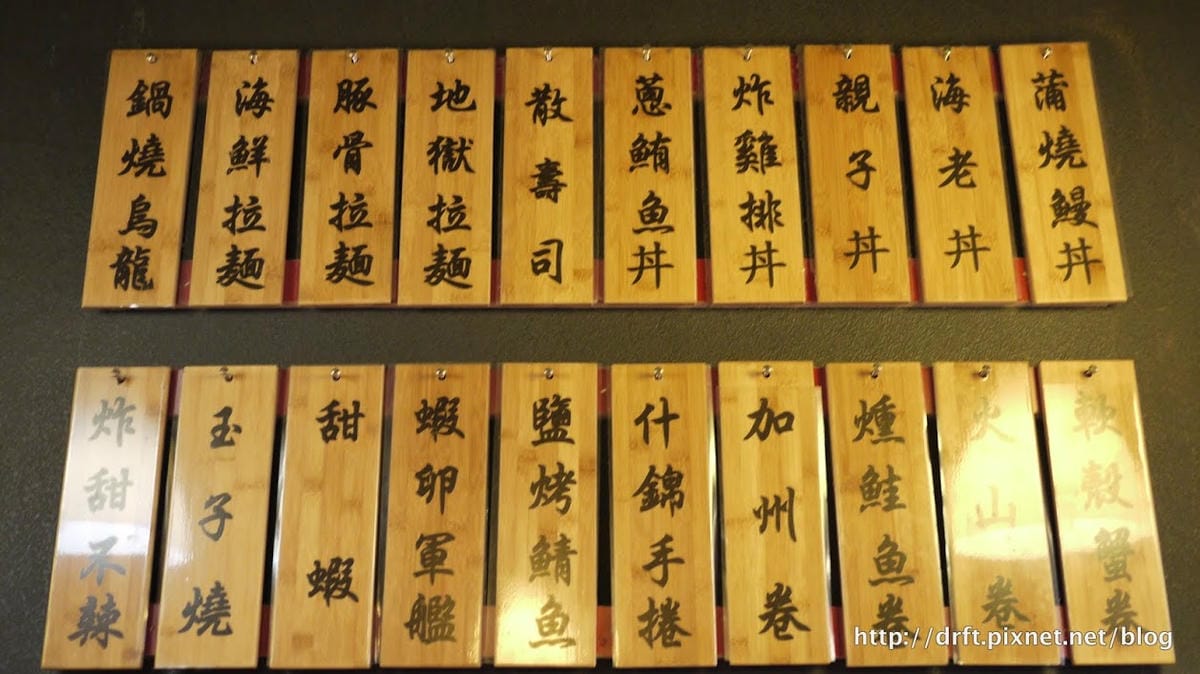 鍋燒烏龍
海鮮拉麵
豚骨拉麵
地獄拉麵
散壽司
蔥鮪魚丼
炸雞排丼
親子丼
海老丼
蒲燒鰻丼
炸甜不辣
玉子燒
甜蝦
蝦卵軍艦
鹽烤鯖魚
什錦手捲
加州卷
燻鮭魚卷
火山卷
軟殼蟹卷
http://drft.pixnet.net/blog